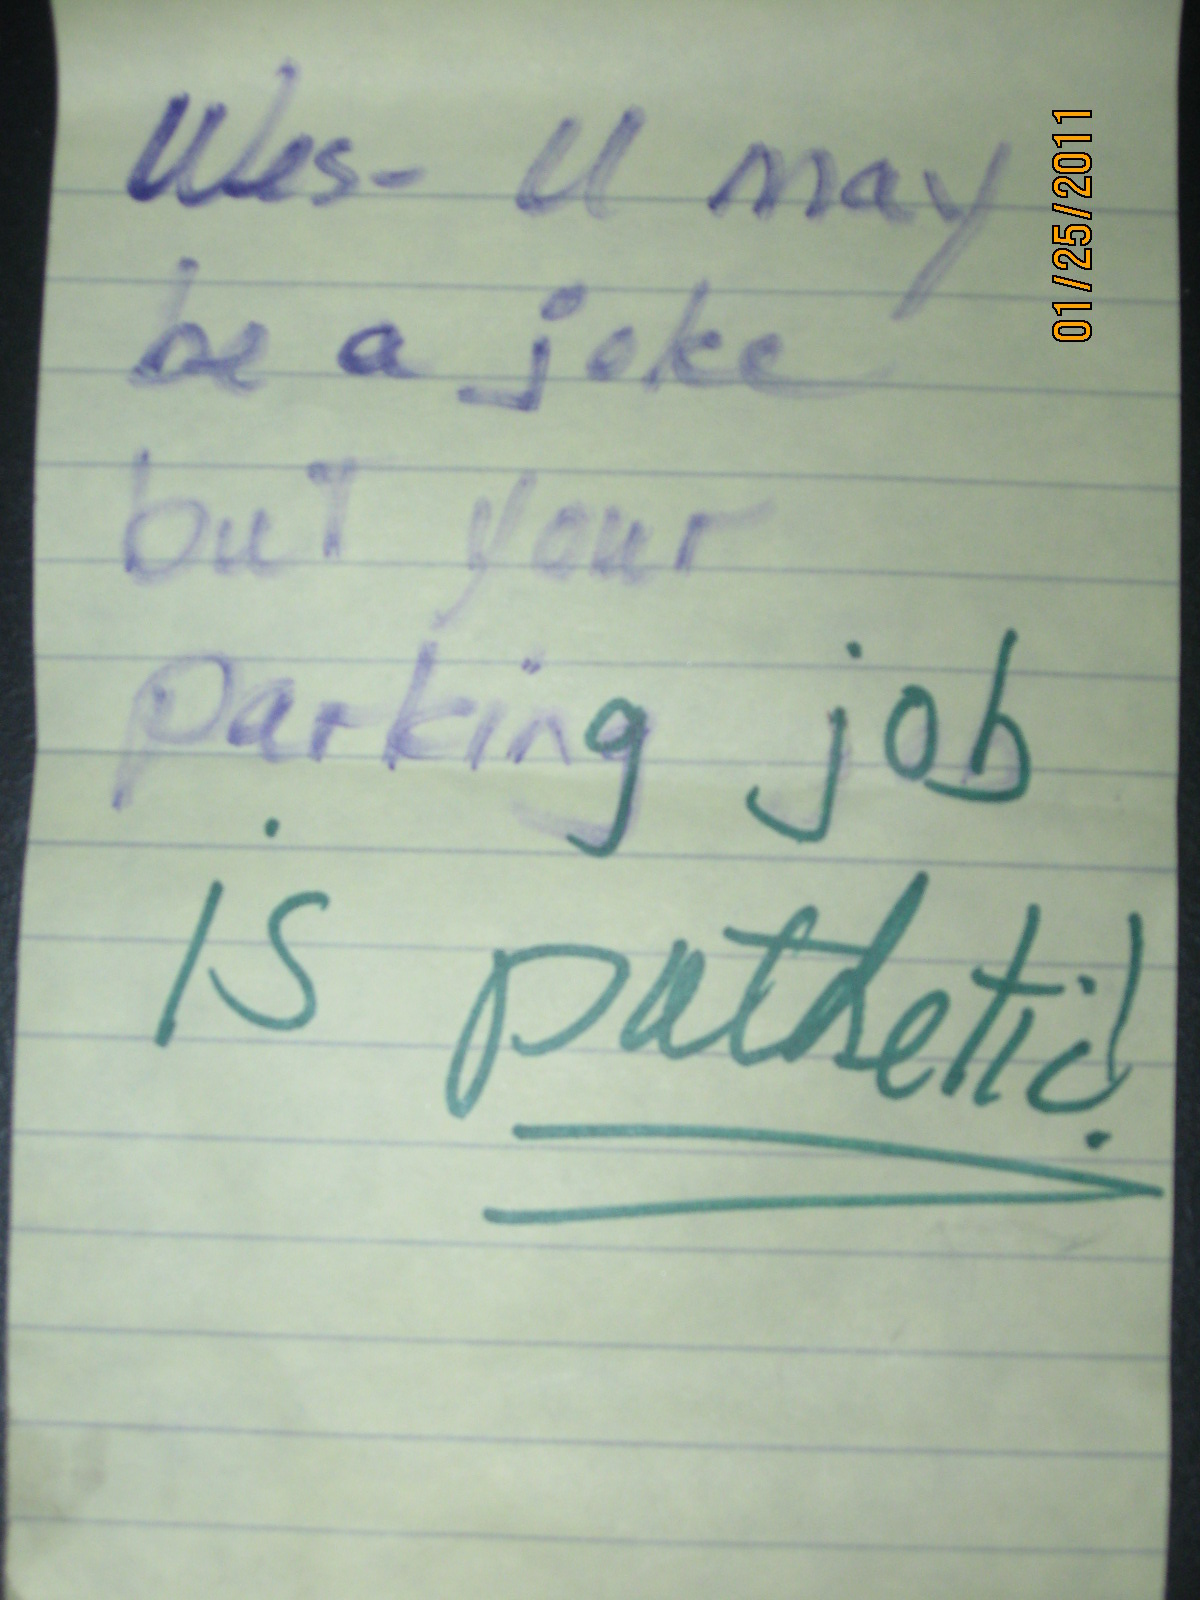 Wes- U may
be a joke
but your
parking job
is pathetic!
01/25/2011